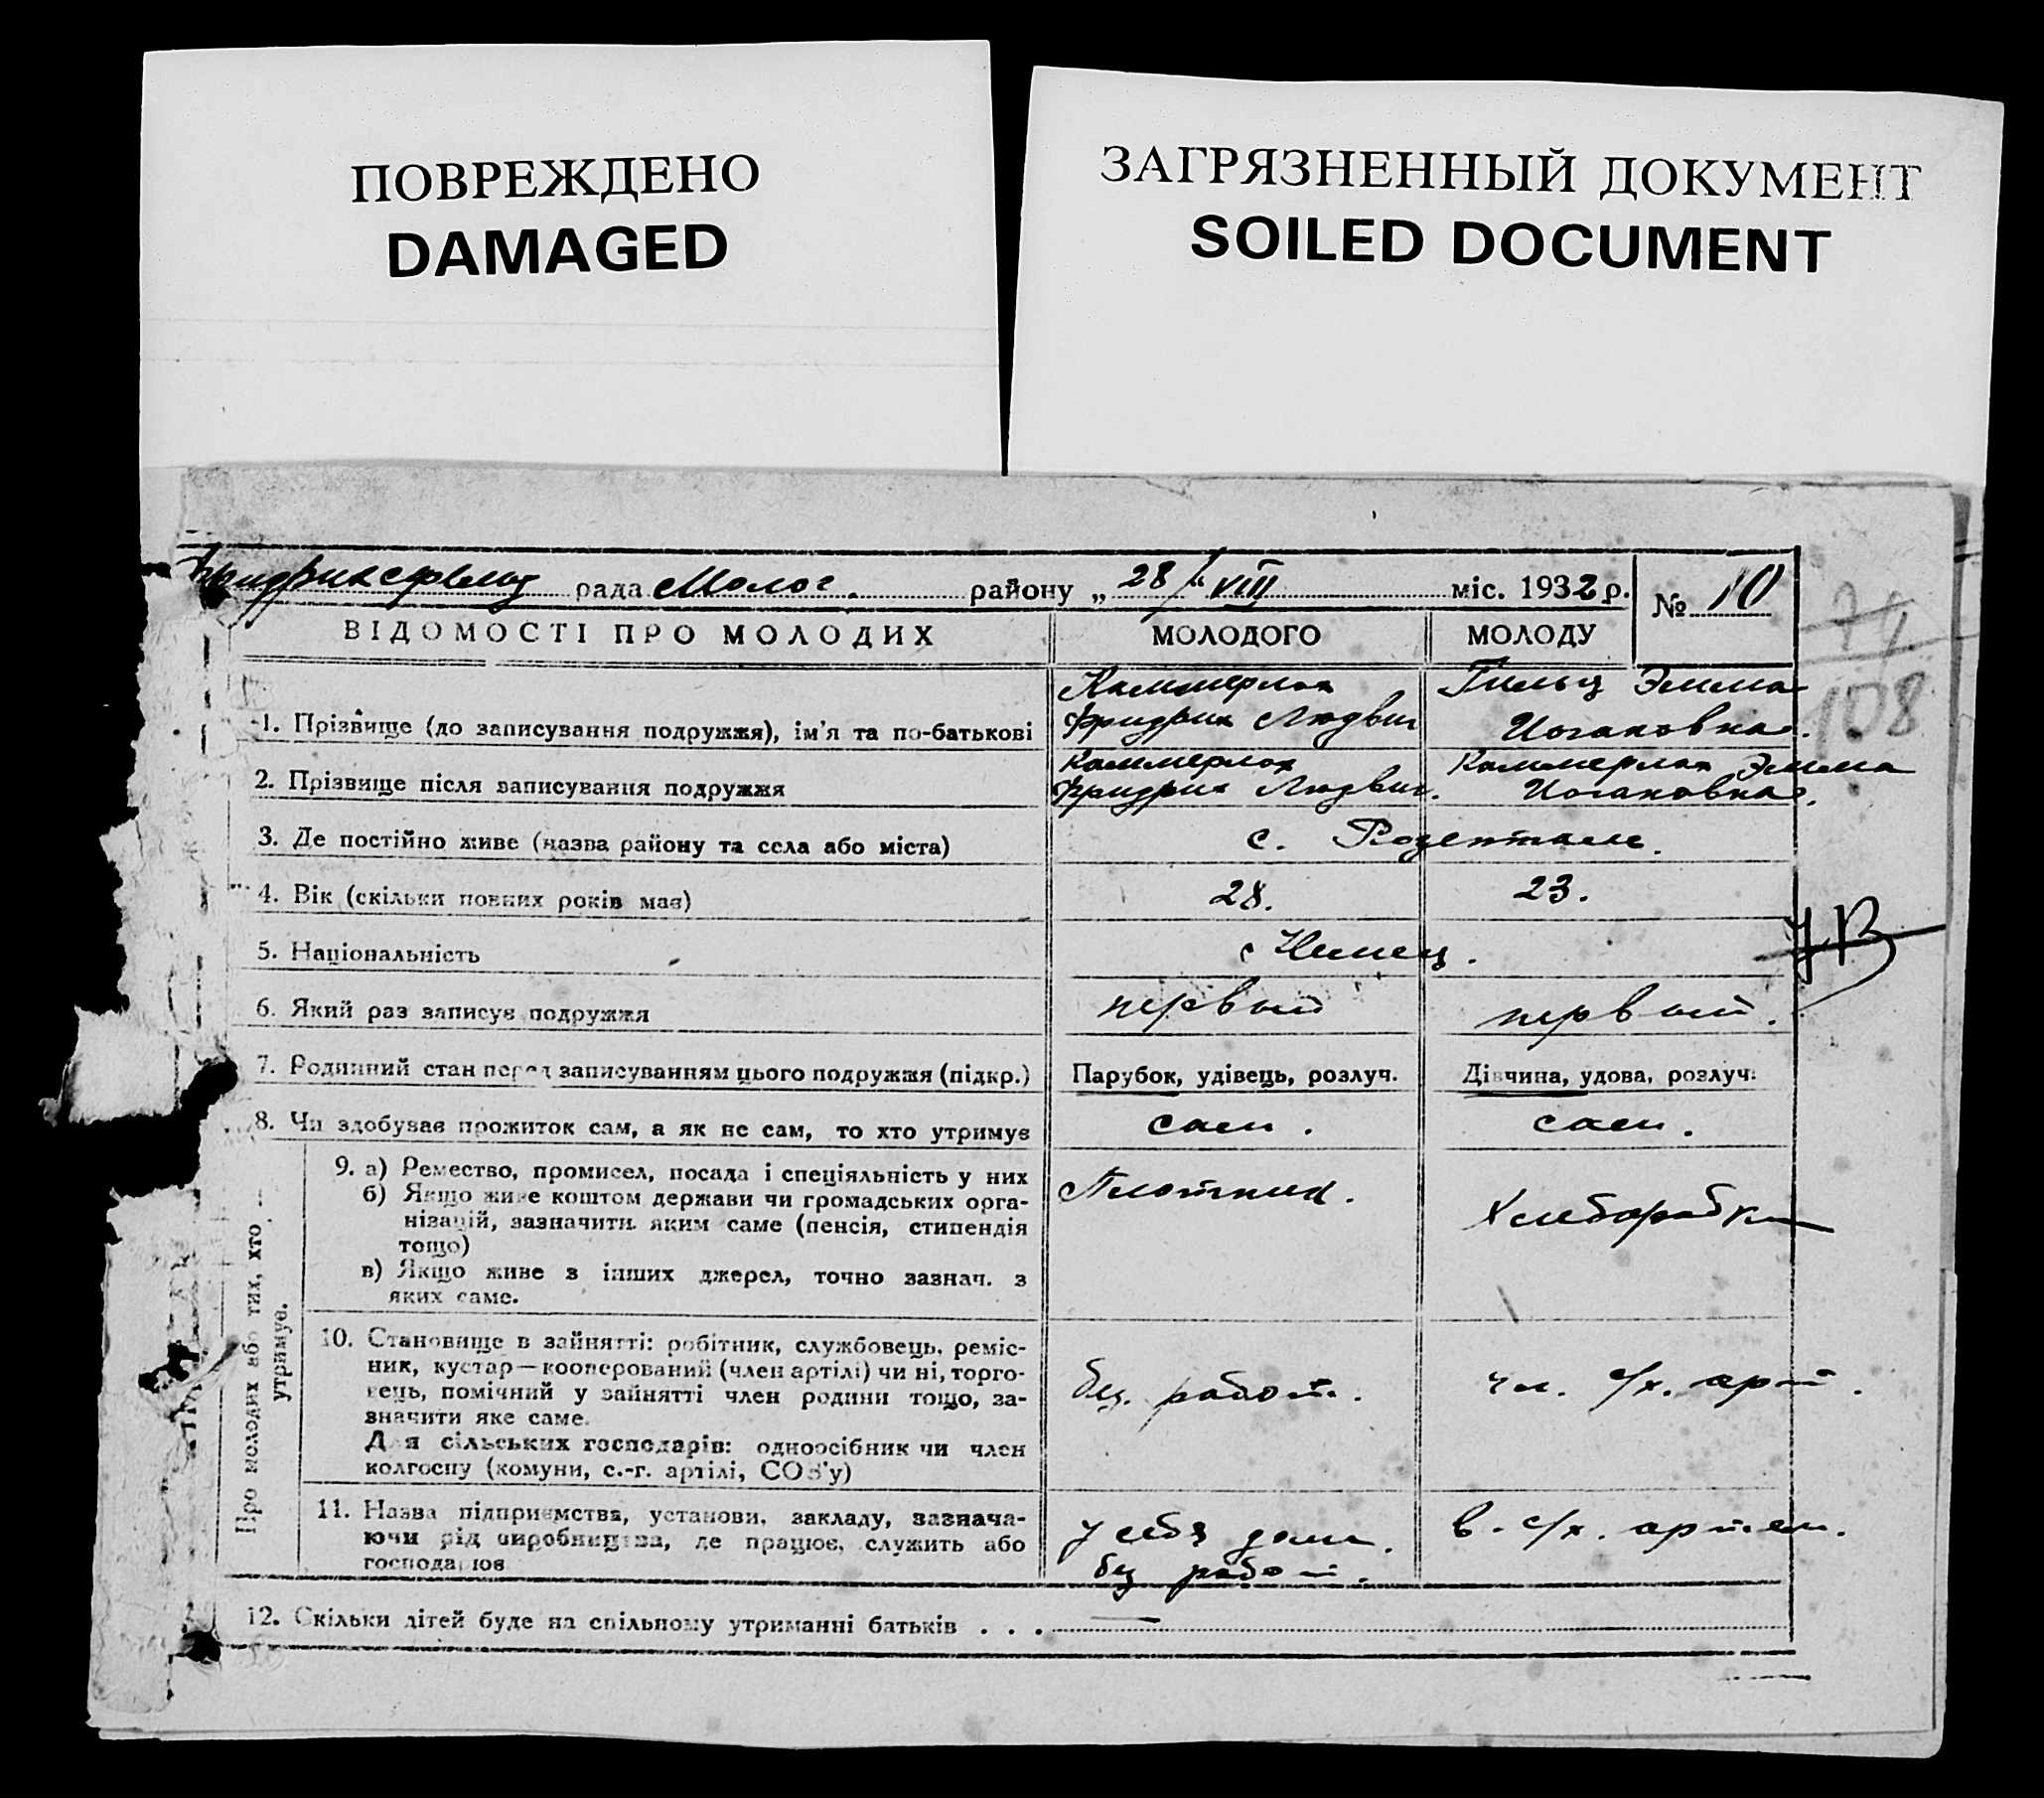 ПОВРЕЖДЕНО
DAMAGED
ЗАГРЯЗНЕННЫЙ ДОКУМЕНТ
SOILED DOCUMENT
рада Молог. району „ 28 “ VIII міс. 1932 р. № 10
ВІДОМОСТІ ПРО МОЛОДИХ МОЛОДОГО МОЛОДУ
108
1. Прізвище (до записування подружжя), ім'я та по-батькові
Каммерлох
Фридрих Людвиг
Гильц Эмма
Иогановна.
2. Прізвище після записування подружжя
Каммерлох
Фридрих Людвиг.
Каммерлох Эмма
Иогановна.
3. Де постійно живе (назва району та села або міста) с. Розенталь.
4. Вік (скільки повних років має) 28. 23.
5. Національність Немец.
6. Який раз записує подружжя первый первый.
7. Родинний стан перед записуванням цього подружжя (підкр.) Парубок, удівець, розлуч. Дівчина, удова, розлуч.
8. Чи здобував прожиток сам, а як не сам, то хто утримує сам. сам.
Про молодих або тих, хто
утримує.
9. а) Ремество, промисел, посада і спеціяльність у них
б) Якщо живе коштом держави чи громадських орга-
нізацій, зазначити яким саме (пенсія, стипендія
тощо)
в) Якщо живе з інших джерел, точно зазнач. з
яких саме.
Плотник.
Хлеборобка
10. Становище в зайнятті: робітник, службовець, реміс-
ник, кустар—кооперований (член артілі) чи ні, торго-
вець, помічний у зайнятті член родини тощо, за-
значити яке саме.
Для сільських господарів: одноосібник чи член
колгоспу (комуни, с.-г. артілі, СОЗ'у)
без. работ.
чл. с/х. арт.
11. Назва підприємства, установи, закладу, зазнача-
ючи рід виробництва, де працює, служить або
господарює
у себя дома.
без работ.
в. с/х. артел.
12. Скільки дітей буде на спільному утриманні батьків . . . —